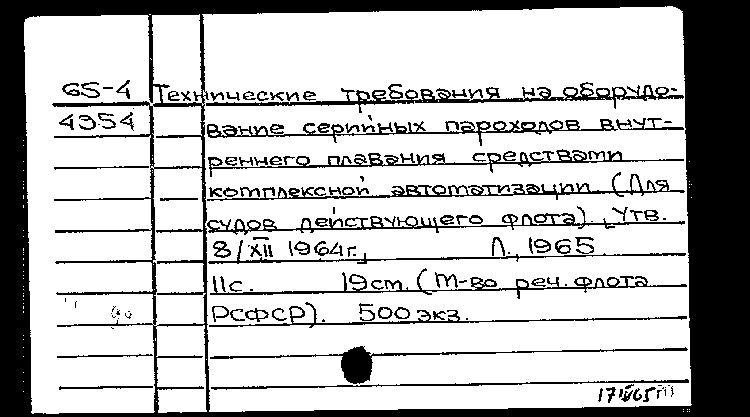 65-4 Технические требования на оборудо-
4954 вание серийных пароходов внут-
реннего плавания средствами
комплексной автоматизации (Для
судов действующего флота). [Утв.
8/XII 1964г.] Л., 1965
11с. 19см. (М-во реч. флота
РСФСР). 500 экз.